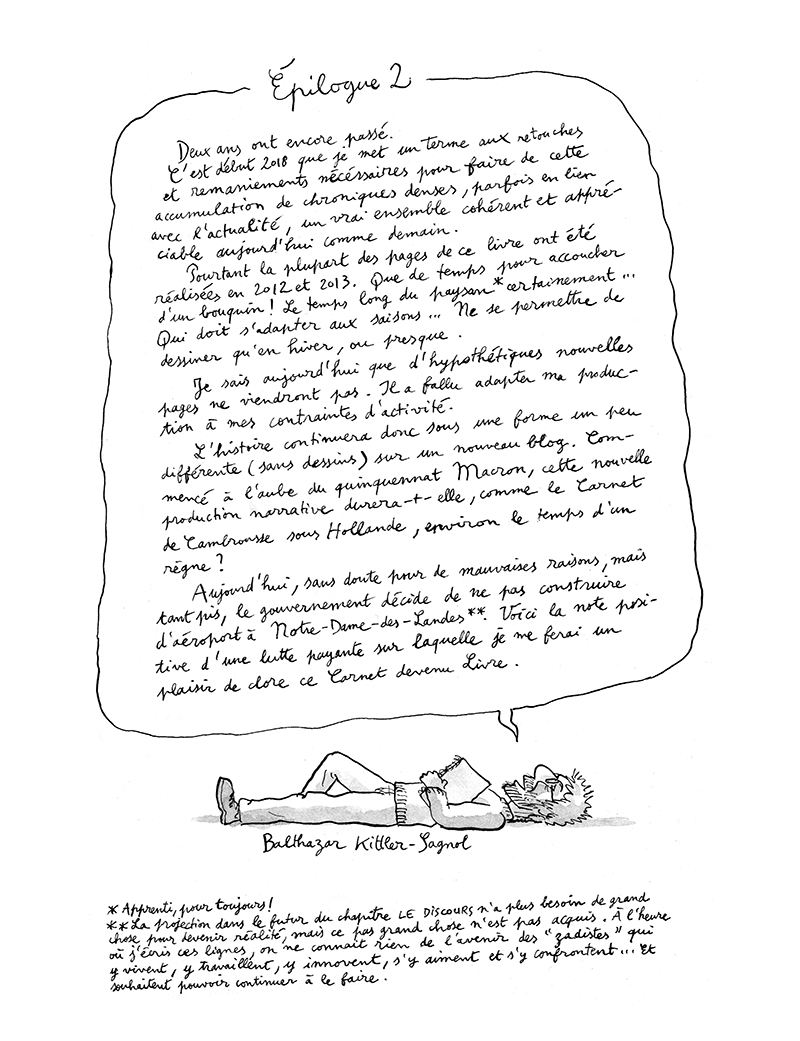 Épilogue 2
Deux ans ont encore passé.
C'est début 2018 que je met un terme aux retouches
et remaniements nécéssaires pour faire de cette
accumulation de chroniques denses, parfois en lien
avec l'actualité, un vrai ensemble cohérent et appré-
ciable aujourd'hui comme demain.
Pourtant la plupart des pages de ce livre ont été
réalisées en 2012 et 2013. Que de temps pour accoucher
d'un bouquin ! Le temps long du paysan* certainement...
Qui doit s'adapter aux saisons... Ne se permettre de
dessiner qu'en hiver, ou presque.
Je sais aujourd'hui que d'hypothétiques nouvelles
pages ne viendront pas. Il a fallu adapter ma produc-
tion à mes contraintes d'activité.
L'histoire continuera donc sous une forme un peu
différente (sans dessins) sur un nouveau blog. Com-
mencé à l'aube du quinquennat Macron, cette nouvelle
production narrative durera-t-elle, comme le Carnet
de Cambrousse sous Hollande, environ le temps d'un
règne ?
Aujourd'hui, sans doute pour de mauvaises raisons, mais
tant pis, le gouvernement décide de ne pas construire
d'aéroport à Notre-Dame-des-Landes**. Voici la note posi-
tive d'une lutte payante sur laquelle je me ferai un
plaisir de clore ce Carnet devenu Livre.
Balthazar Kittler-Sagnol
* Apprenti, pour toujours !
** La projection dans le futur du chapitre LE DISCOURS n'a plus besoin de grand
chose pour devenir réalité, mais ce pas grand chose n'est pas acquis. À l'heure
où j'écris ces lignes, on ne connait rien de l'avenir des "zadistes" qui
y vivent, y travaillent, y innovent, s'y aiment et s'y confrontent... Et
souhaitent pouvoir continuer à le faire.